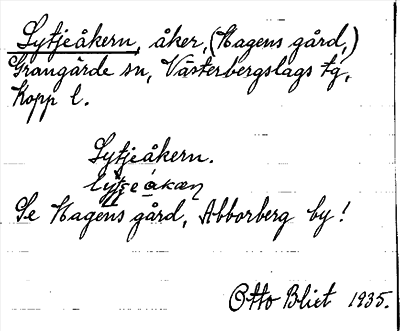 Sytjeåkern, åker, (Hagens gård,)
Grangärde sn, Västerbergslags tg,
Kopp l.
Sytjeåkern.
Se Hagens gård, Abborberg by!
Otto Blixt 1935.